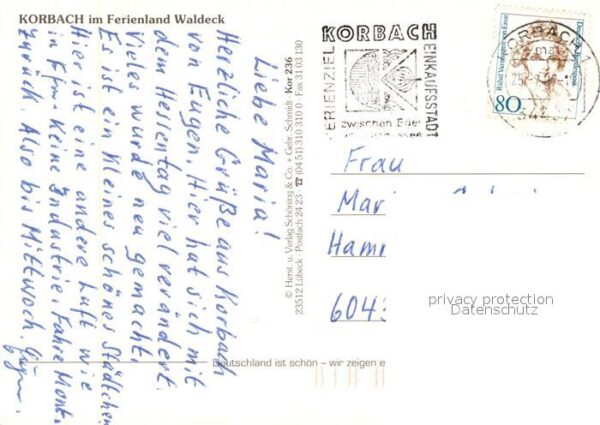 KORBACH im Ferienland Waldeck
Liebe Maria!
Herzliche Grüße aus Korbach
von Eugen. Hier hat sich mit
dem Hessentag viel verändert.
Vieles wurde neu gemacht.
Es ist ein kleines schönes Städtchen
Hier ist eine andere Luft wie
in Ffm. Keine Industrie. Fahre Mont.
zurück. Also bis Mittwoch.
© Herst. u. Verlag Schöning & Co. + Gebr. Schmidt Kor 236
23512 Lübeck · Postfach 24 23 · ☎ (04 51) 310 310 0 · Fax 31 03 130
Deutschland ist schön – wir zeigen e
KORBACH
FERIENZIEL
EINKAUFSSTADT
zwischen Eder
KORBACH 1
Rahel Varnhagen von Ense
Deutsche Bundespost
80
Frau
Mari
Ham
604
privacy protection
Datenschutz